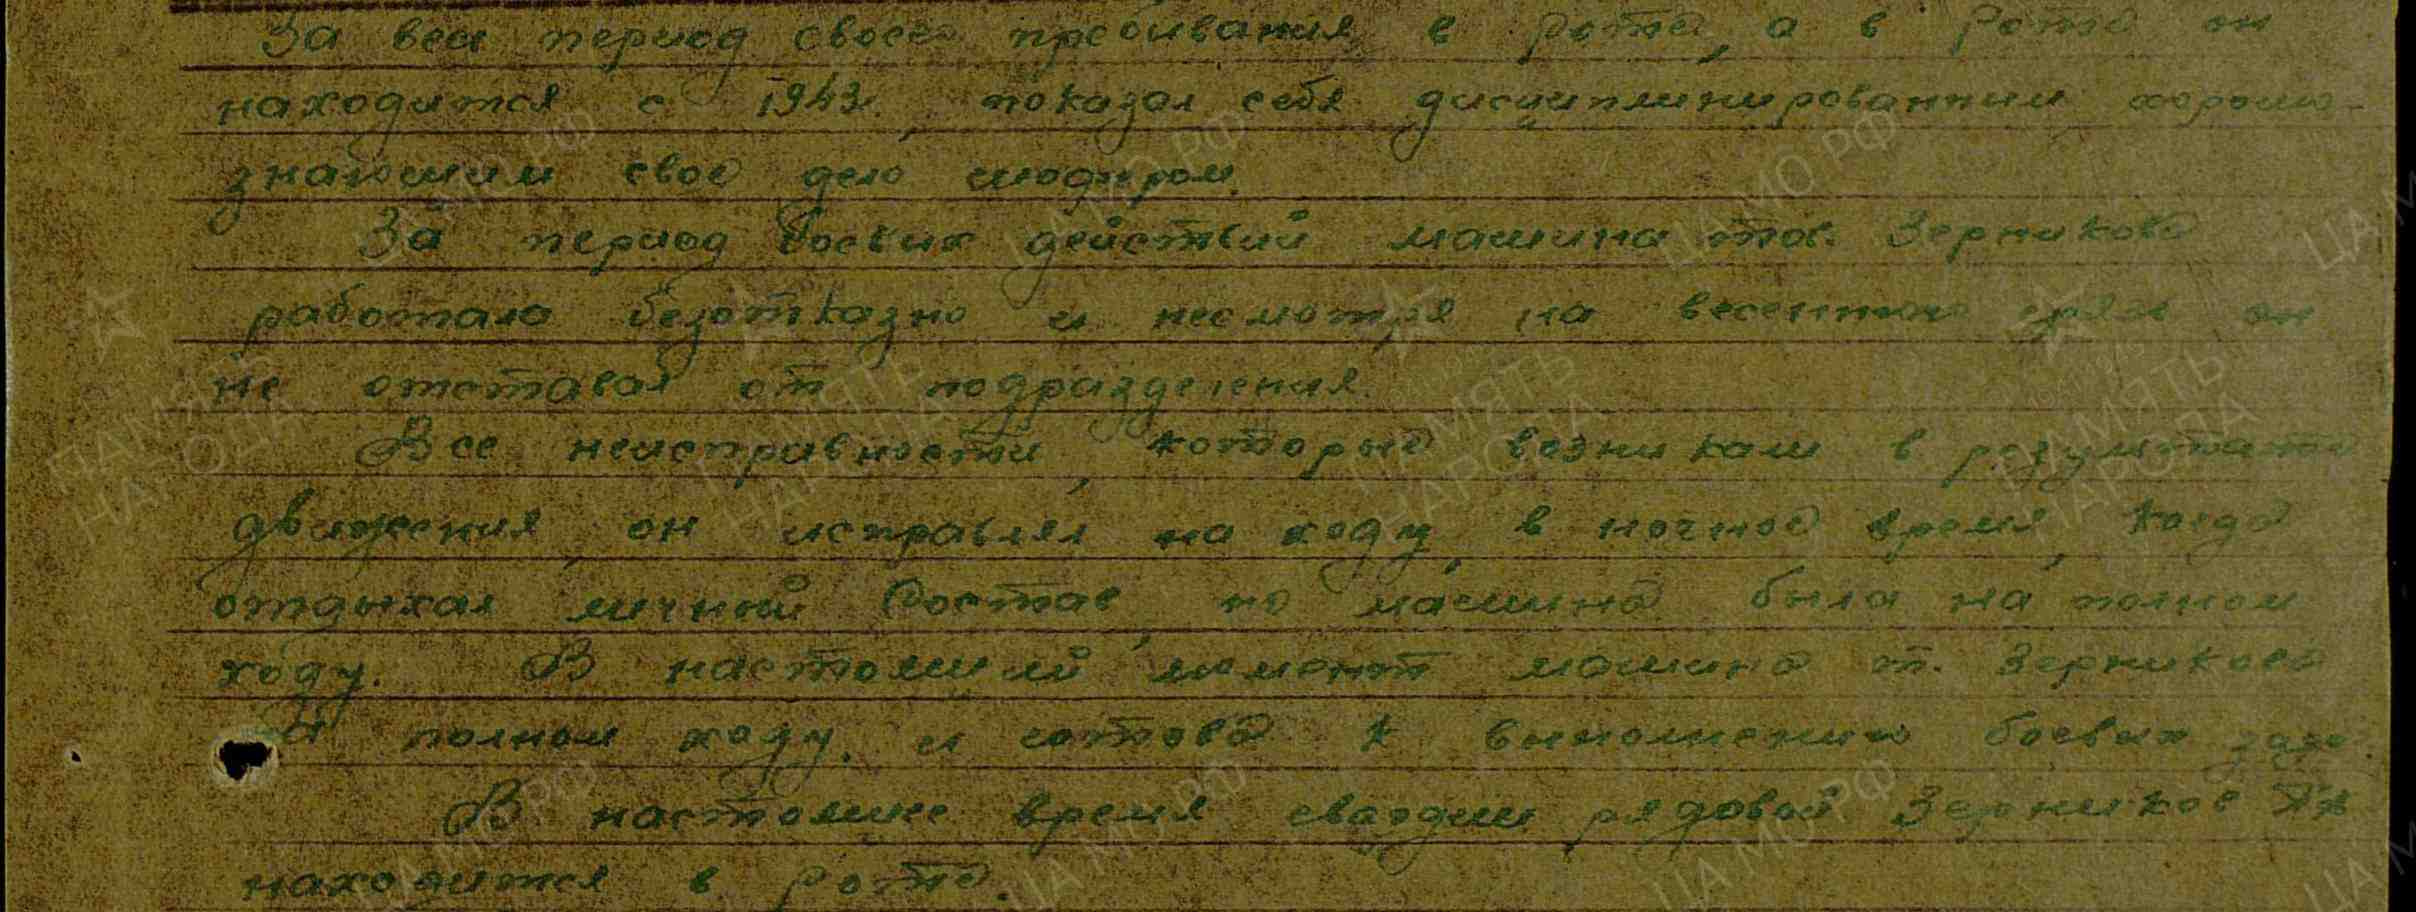 За весь период своего пребывания в роте, а в роте он
находится с 1943г., показал себя дисциплинированным хорошо-
знающим свое дело шофером.
За период боевых действий машина тов. Зерникова
работала безотказно и несмотря на весеннюю грязь он
не отставал от подразделения.
Все неисправности, которые возникали в результате
движения, он исправлял на ходу, в ночное время, когда
отдыхал личный состав, но машина была на полном
ходу. В настоящий момент машина т. Зерникова
на полном ходу и готова к выполнению боевых задач.
В настоящее время гвардии рядовой Зерников
находится в роте.
ЦА МО РФ
ПАМЯТЬ
НАРОДА